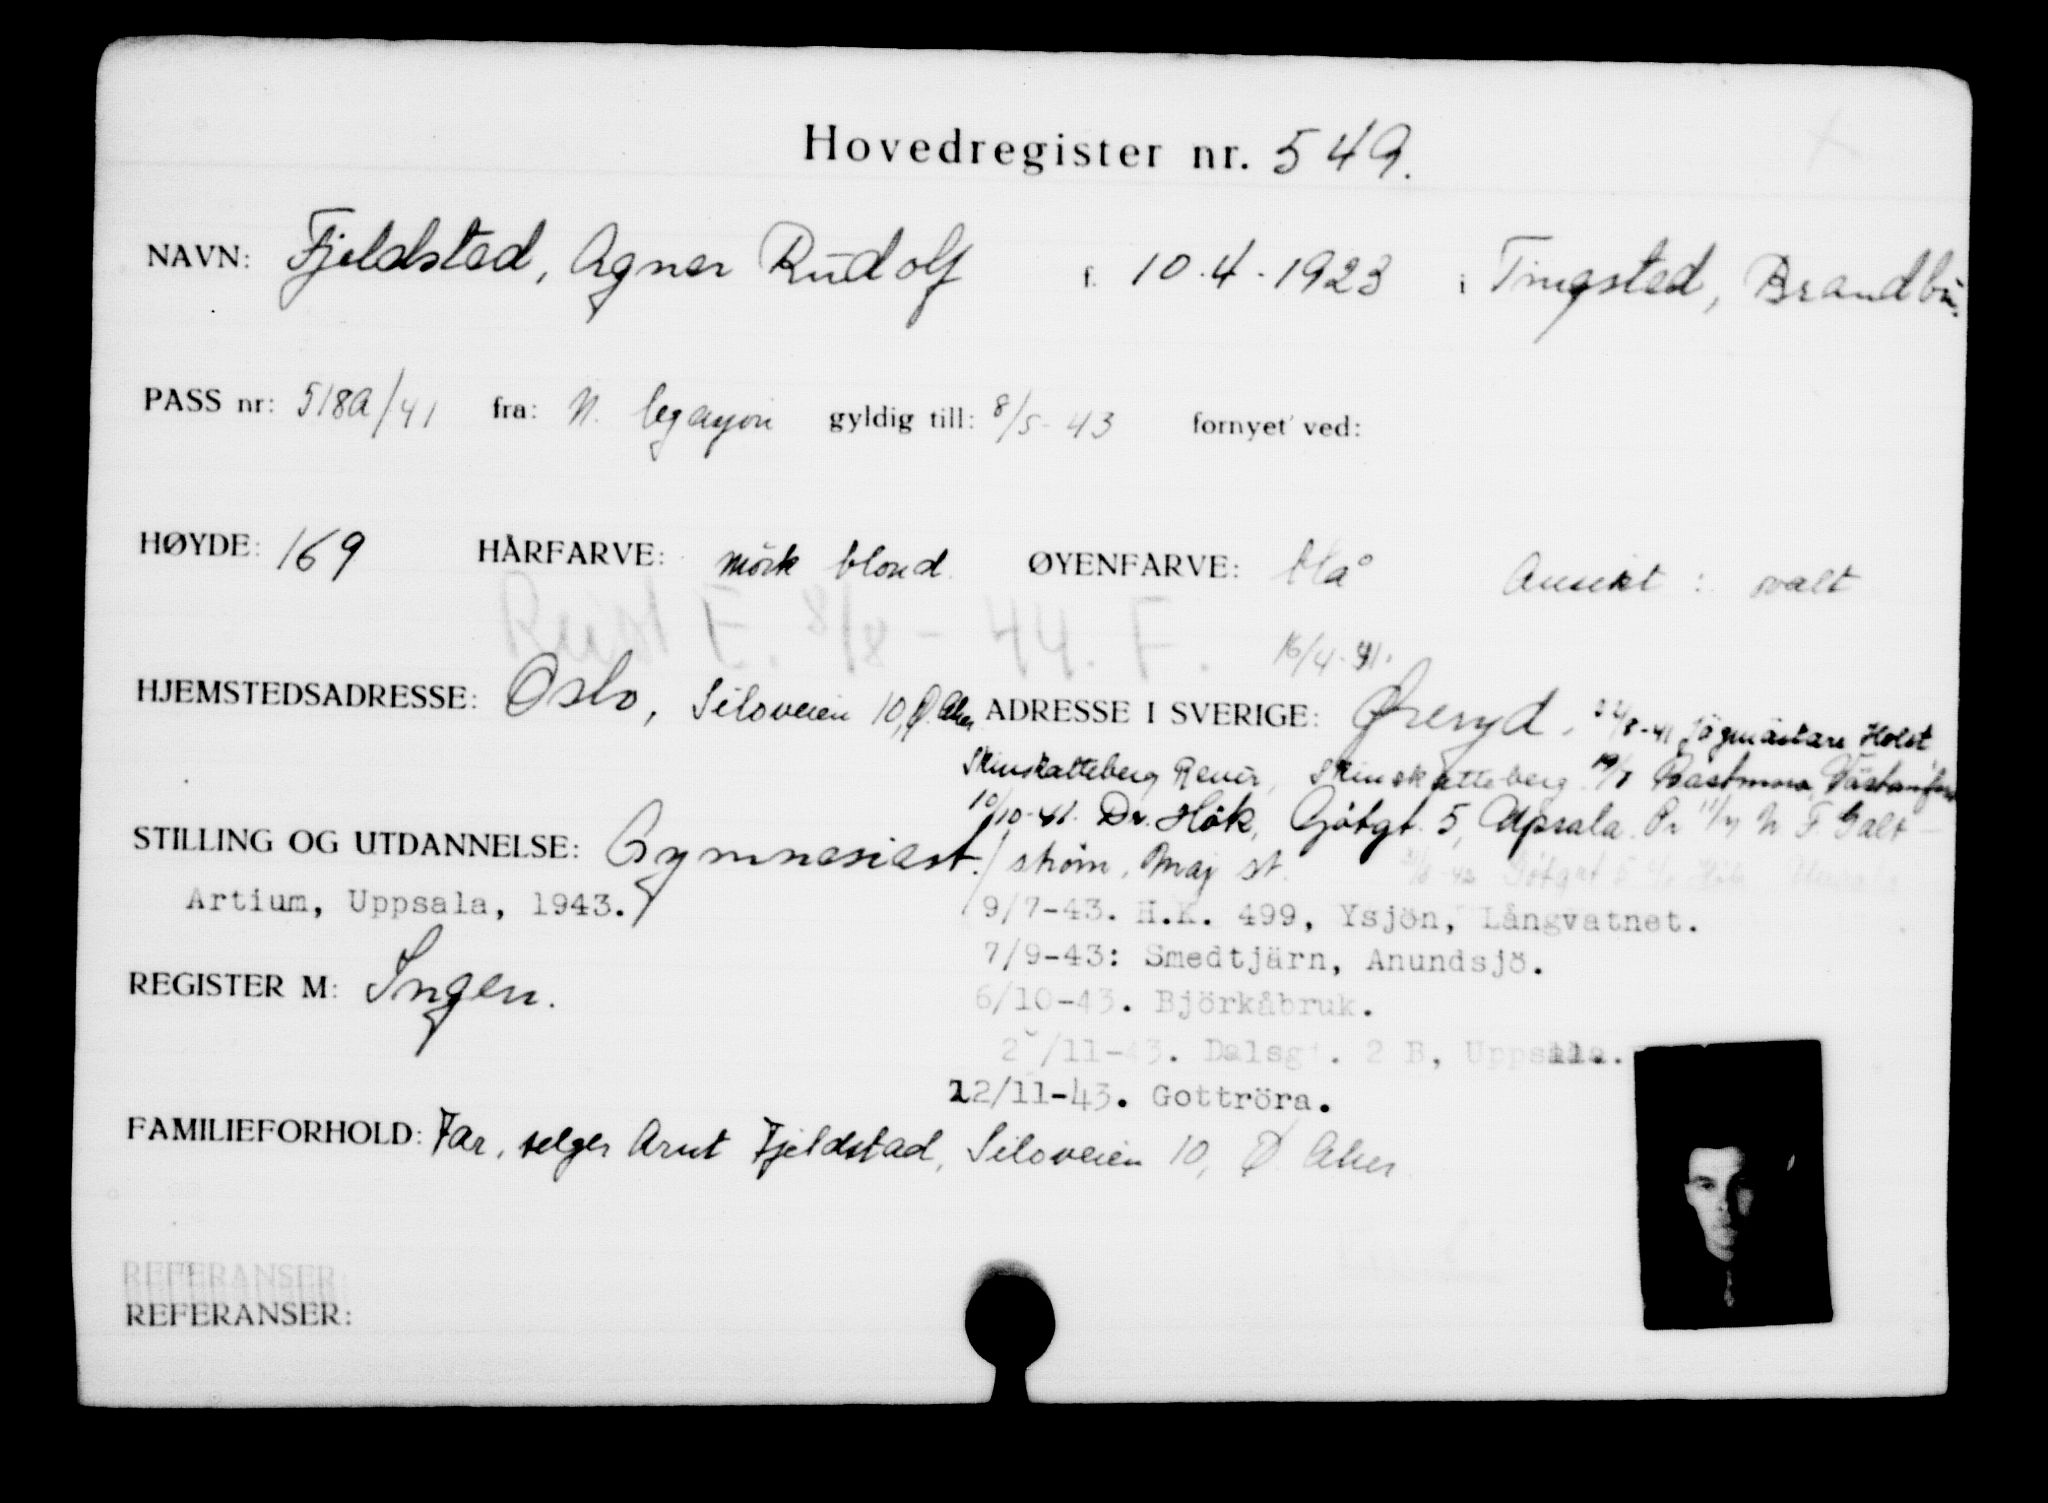 Hovedregister nr. 549.
NAVN: Fjeldstad, Agnar Rudolf f. 10.4.1923 i Tingsted, Brandbu.
PASS nr: 518A/41 fra: N. legasjon gyldig till: 8/5-43 fornyet ved:
HØYDE: 169 HÅRFARVE: mörk blond. ØYENFARVE: blå Ansikt: ovalt
Reist E. 8/8-44. F.
16/4-41.
HJEMSTEDSADRESSE: Oslo, Siloveien 10, Ø. Aker. ADRESSE I SVERIGE: Øreryd. 22/8-41 Jägmästare Holst,
Skinskatteberg Revir, Skinskatteberg. Västanfors
10/10-41. Dr. Hök, Götgt. 5, Upsala.
STILLING OG UTDANNELSE: Gymnasiast. strøm, Maj st.
Artium, Uppsala, 1943.
9/7-43. H.K. 499, Ysjön, Långvatnet.
7/9-43: Smedtjärn, Anundsjö.
REGISTER M: Ingen.
6/10-43. Björkåbruk.
/11-43. Dalsgt. 2 B, Uppsala.
12/11-43. Gottröra.
FAMILIEFORHOLD: Far, selger Arnt Fjeldstad, Siloveien 10, Ø. Aker.
REFERANSER
REFERANSER: